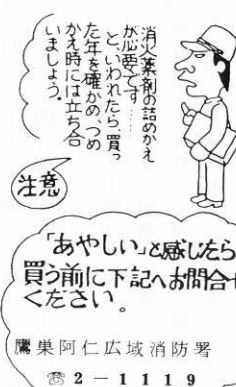 消火薬剤の詰めかえ
が必要です……
と、いわれたら、買っ
た年を確かめ、つめ
かえ時には立ち合
いましょう。
注意
「あやしい」と感じたら
買う前に下記へお問合せ
ください。
鷹巣阿仁広域消防署
☎ 2－1119